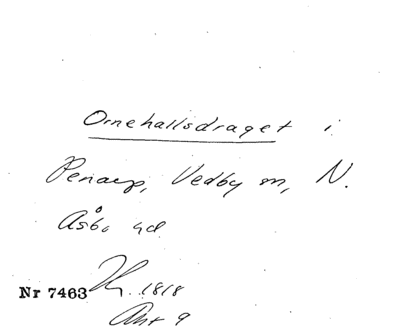 Ornehallsdraget i
Penarp, Vedby m, N.
Åsbo hd.
Nr 7463 1818
Akt 9